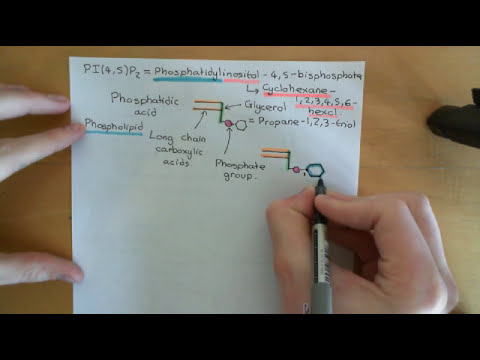 PI(4,5)P2 = Phosphatidylinositol-4,5-bisphosphate
↳ Cyclohexane-
1,2,3,4,5,6-
hexol.
Phosphatidic
acid
Glycerol
= Propane-1,2,3-triol
Phospholipid
Long chain
carboxylic
acids.
Phosphate
group.
1